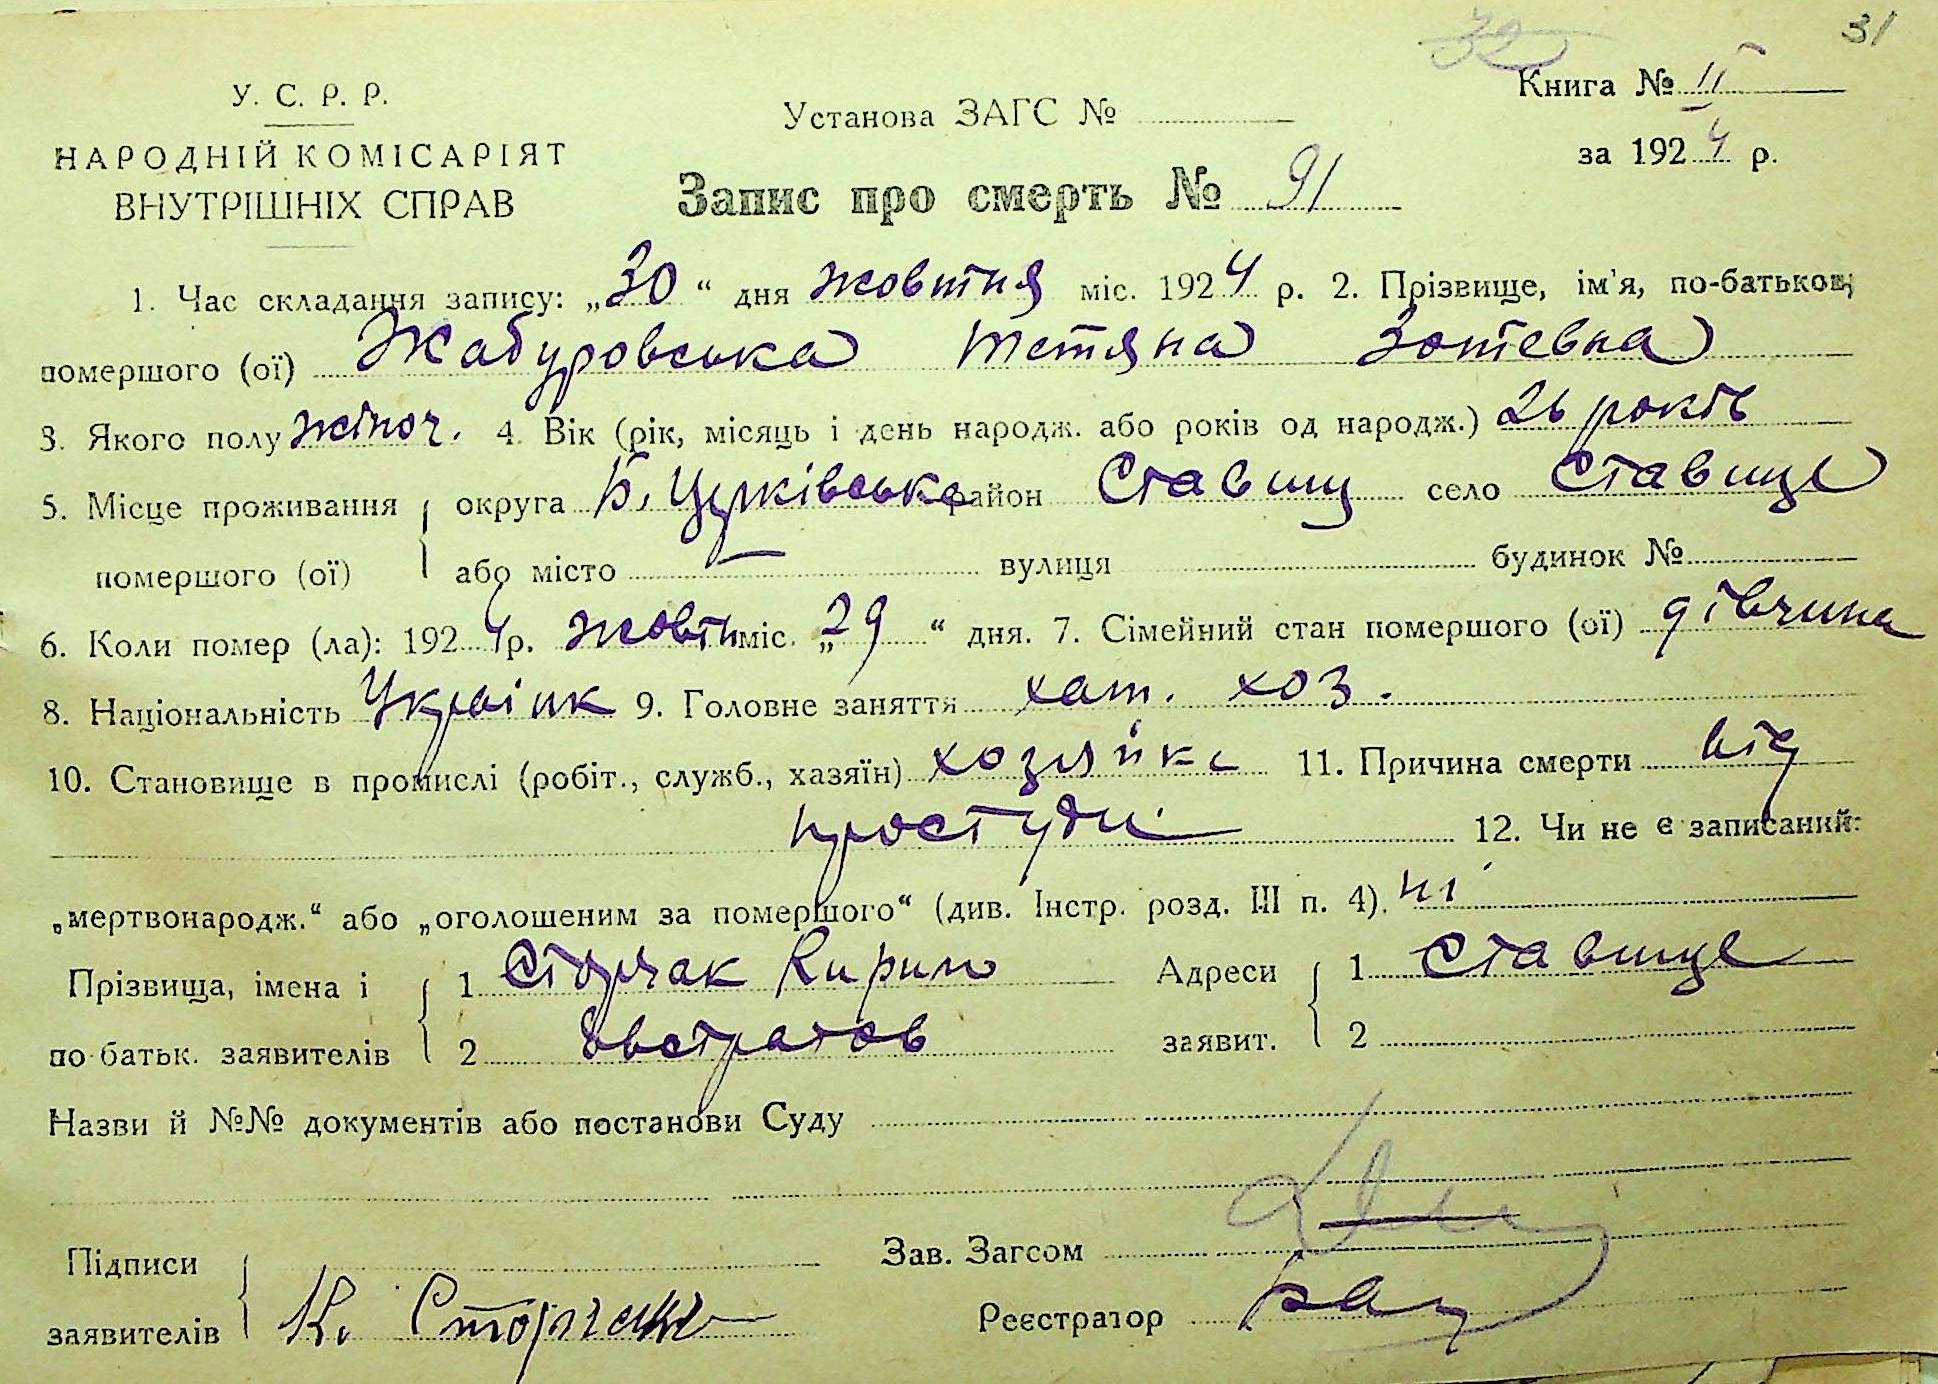 32 31
У. С. Р. Р.
НАРОДНІЙ КОМІСАРІЯТ
ВНУТРІШНІХ СПРАВ
Установа ЗАГС №
Книга № II
за 1924 р.
Запис про смерть № 91
1. Час складання запису: „30“ дня жовтня міс. 1924 р. 2. Прізвище, ім'я, по-батькові
помершого (ої) Жабуровська Тетяна Зотевна
3. Якого полу жіноч. 4. Вік (рік, місяць і день народж. або років од народж.) 26 років
5. Місце проживання округа Б. Церківська район Ставищ село Ставище
помершого (ої) або місто — вулиця будинок №
6. Коли помер (ла): 1924 р. жовтн міс. „29“ дня. 7. Сімейний стан помершого (ої) дівчина
8. Національність Україик 9. Головне заняття хат. хоз.
10. Становище в промислі (робіт., служб., хазяїн) хозяйка 11. Причина смерти від
простуди 12. Чи не є записаний:
„мертвонародж.“ або „оголошеним за помершого“ (див. Інстр. розд. III п. 4). ні
Прізвища, імена і 1 Сторчак Кирило Адреси 1 Ставище
по батьк. заявителів 2 Евстратов заявит. 2
Назви й №№ документів або постанови Суду
Підписи Зав. Загсом
заявителів К. Сторчак Реєстратор